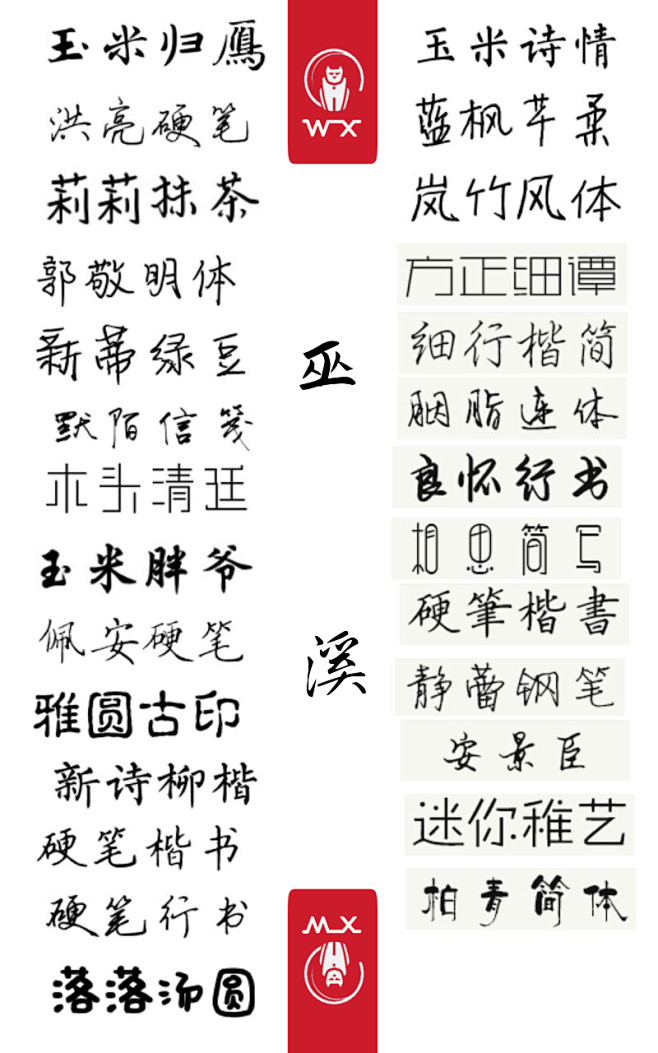 玉米归鴈
洪亮硬笔
莉莉抹茶
郭敬明体
新蒂绿豆
默陌信笺
木头清廷
玉米胖爷
佩安硬笔
雅圆古印
新诗柳楷
硬笔楷书
硬笔行书
落落汤圆
WX
巫
溪
WX
玉米诗情
蓝枫芊柔
岚竹风体
方正细谭
细行楷简
胭脂连体
良怀行书
相思简写
硬筆楷書
静蕾钢笔
安景臣
迷你稚艺
柏青简体